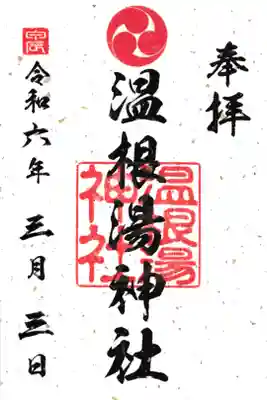 奉拝
温根湯神社
温根湯
神社
令和六年 三月 三日